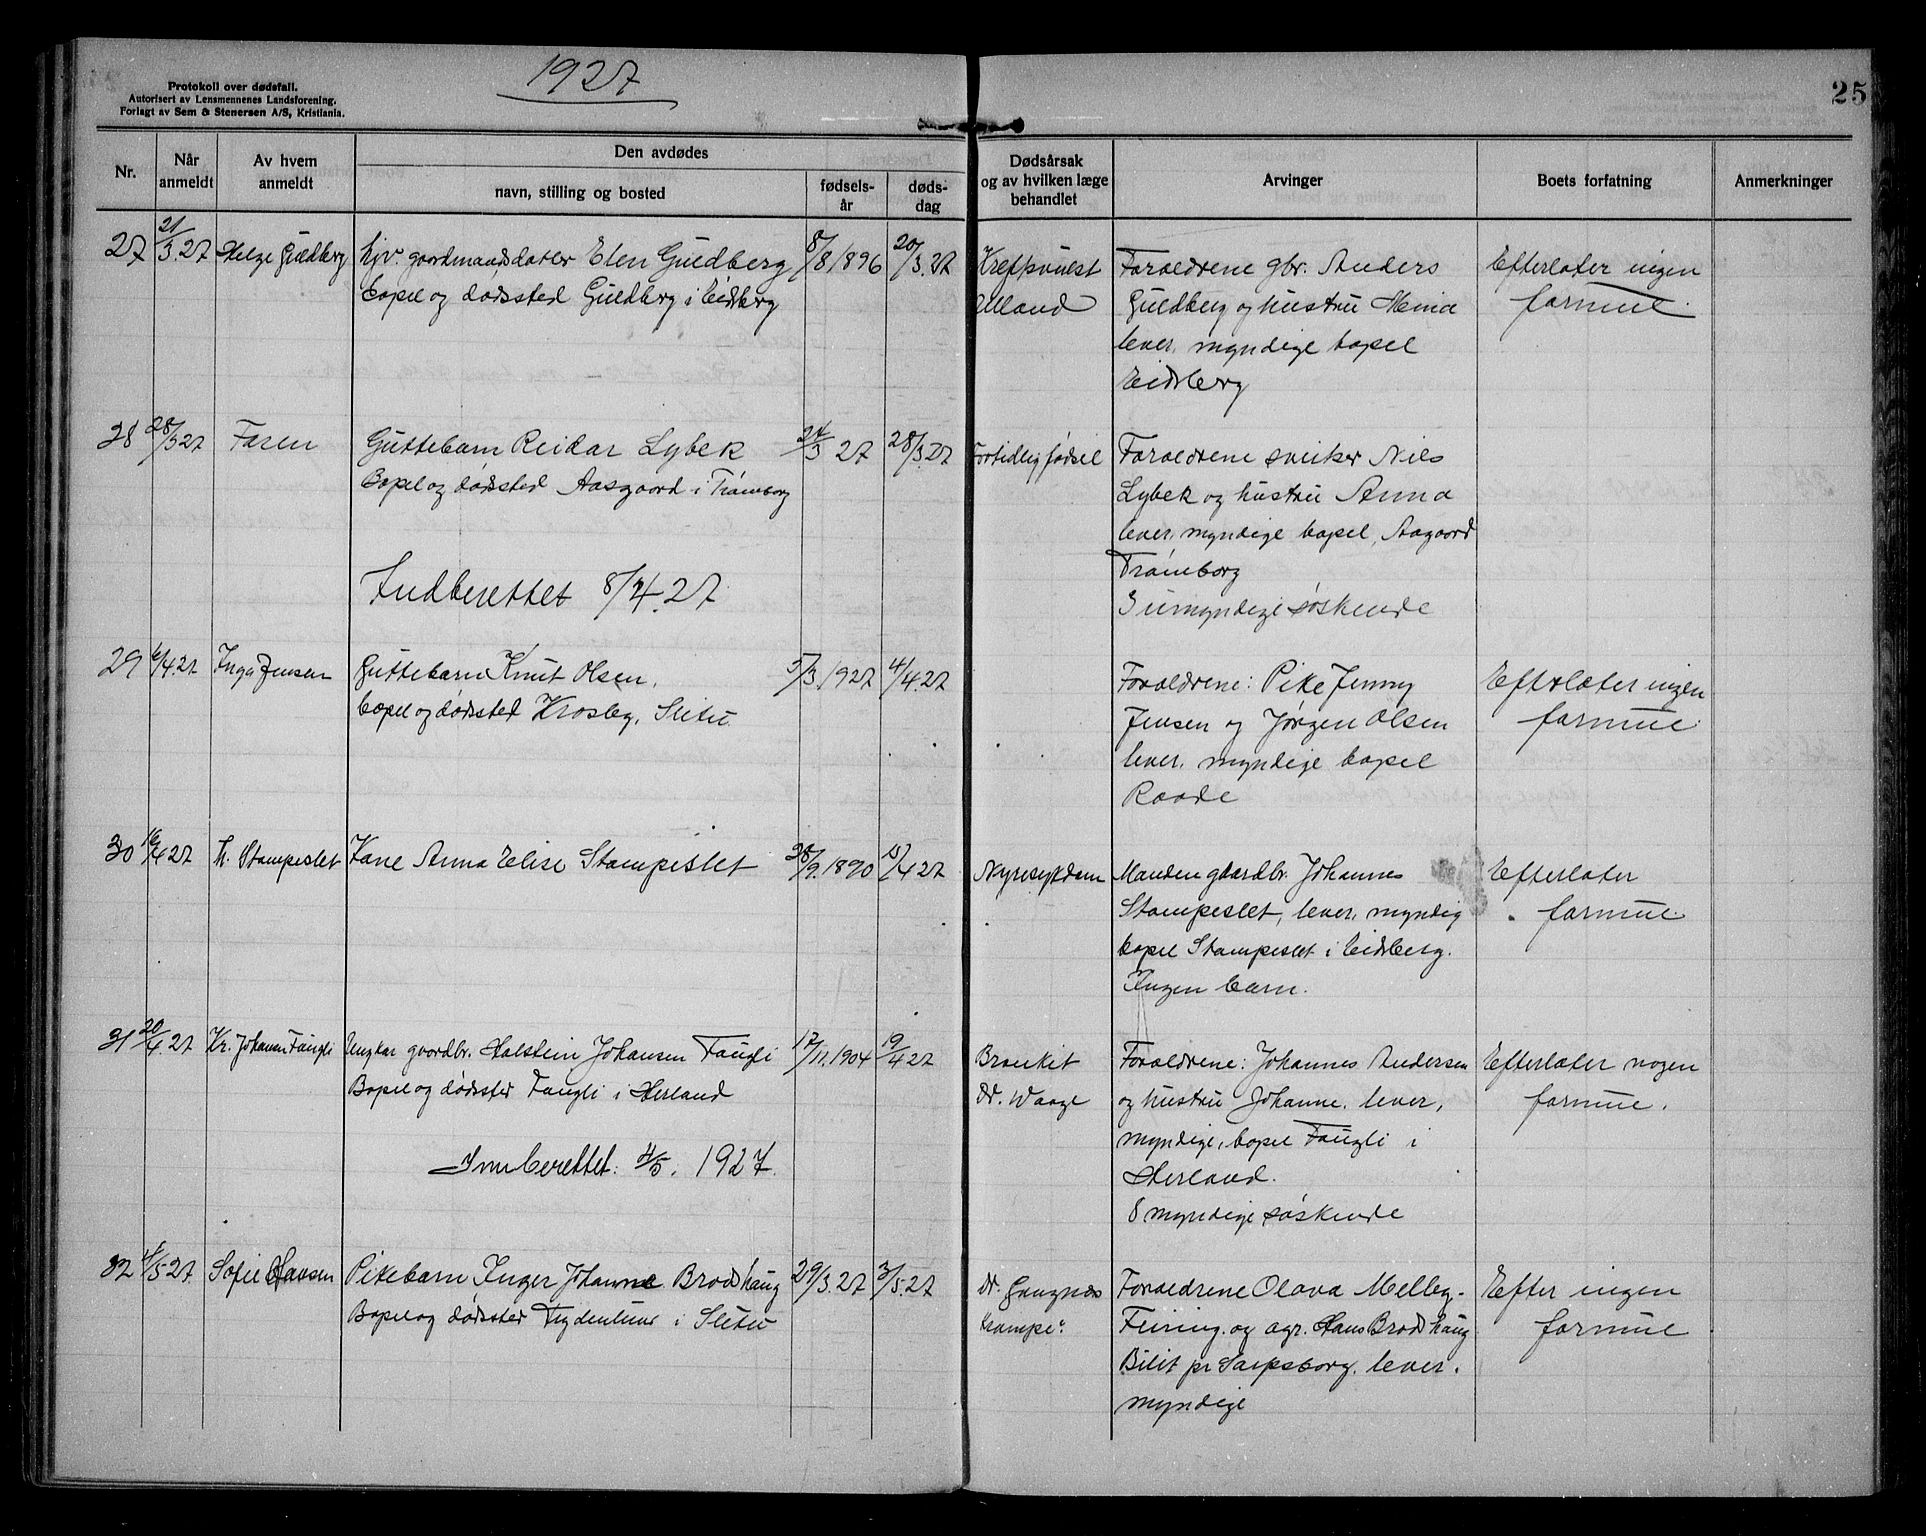 1927
25
Protokoll over dødsfall.
Autorisert av Lensmennenes Landsforening.
Forlagt av Sem & Stenersen A/S, Kristiania.
Nr.
Når anmeldt
Av hvem anmeldt
Den avdødes
navn, stilling og bosted
fødsels-år
døds-dag
Dødsårsak og av hvilken læge behandlet
Arvinger
Boets forfatning
Anmerkninger
27 21/3.27 Helge Guldberg
hjv. gaardmandsdatter Elen Guldberg
bopel og dødssted Guldberg i Eidsberg
8/8 1896 20/3.27
Kreftsvulst
Foraeldrene gbr. Anders
Guldberg og hustru
lever, myndige bopel
Eidsberg
Efterlater ingen
formue.
28 28/3 27 Faren
Guttebarn Reidar Lybek
Bopel og dødssted Aasgaard i Trømborg
24/3 27 28/3.27
Fortidlig fødsel
Foraeldrene sveiser Nils
Lybek og hustru Anna
lever, myndige bopel, Aagaard
Trømborg
3 umyndige søskende
Indberettet 8/4.27
29 6/4.27 Inga Jensen
Guttebarn Knut Olsen.
bopel og dødssted Krosby, Slitu
5/3 1927 4/4.27
Foraeldrene: Pike Jenny
Jensen og Jørgen Olsen
lever, myndige bopel
Raade
Efterlater ingen
formue.
30 16/4 27 Stampeslet
Kone Anna Elise Stampeslet
28/9.1890 15/4 27
Nyresykdom
Manden gaardbr. Johannes
Stampeslet, lever, myndig
bopel Stampeslet i Eidsberg.
Ingen barn.
Efterlater
formue.
31 20/4.27 Kr. Johansen Faugli
Ungkar gaardbr. Halstein Johansen Faugli
Bopel og dødssted Faugli i Herland
17/11.1904 19/4 27
Bronkit
Dr. Waage
Foraeldrene: Johannes Andersen
og hustru Johanne, lever,
myndige, bopel Faugli i
Herland.
8 myndige søskende
Efterlater nogen
formue.
Innberettet: 4/5. 1927.
32 4/5.27 Sofie Hansen
Pikebarn Inger Johanne Brodshaug
Bopel og dødssted i Slitu
29/3.27 3/5.27
Dr.
Krampe
Foraeldrene Olava Melleby-
og agr. Hans Brodshaug
pr Sarpsborg. lever.
myndige
Efter ingen
formue